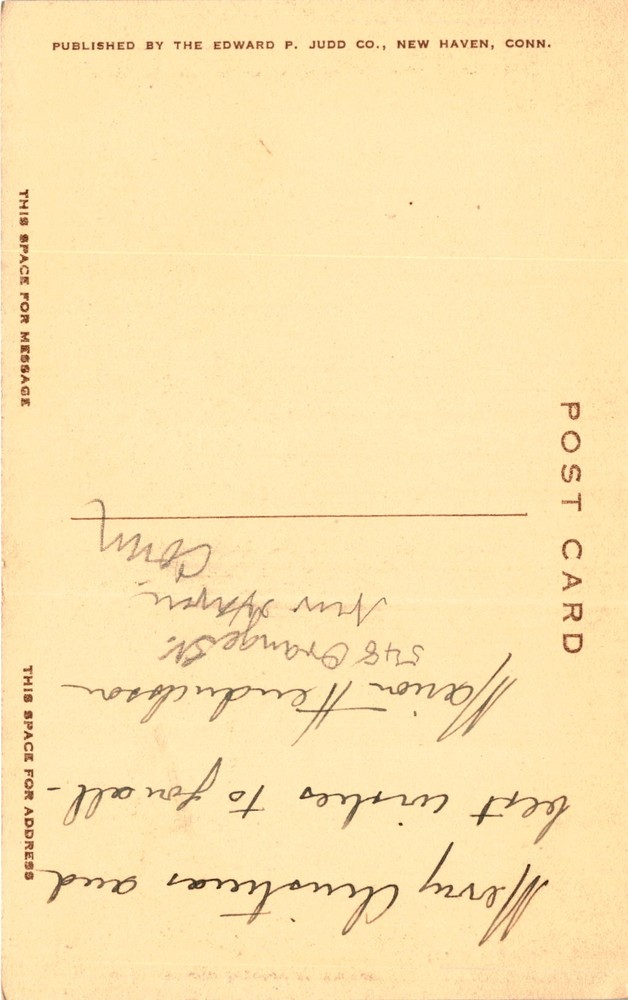 PUBLISHED BY THE EDWARD P. JUDD CO., NEW HAVEN, CONN.
THIS SPACE FOR MESSAGE
POST CARD
THIS SPACE FOR ADDRESS
Merry Christmas and
best wishes to you all -
Marion Hendrickson
548 Orange St.
New Haven
Conn